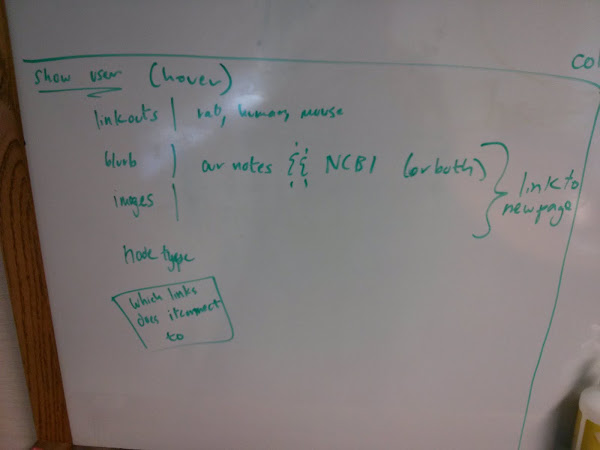 co
show user (hover)
linkouts | rat, human, mouse
blurb | our notes {{ NCBI (or both)
images |
link to
new page
node type
which links
does it connect
to